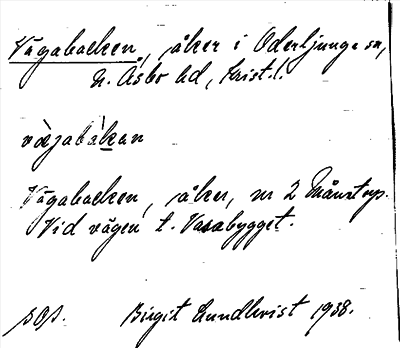 Vägabacken, åker i Oderljunga sn,
N. Åsbo hd, Krist.l.
væ̀jabàkan
Vägabacken, åker, nr 2 Månstorp.
Vid vägen t. Vasabygget.
sOp. Birgit Lundkvist 1938.